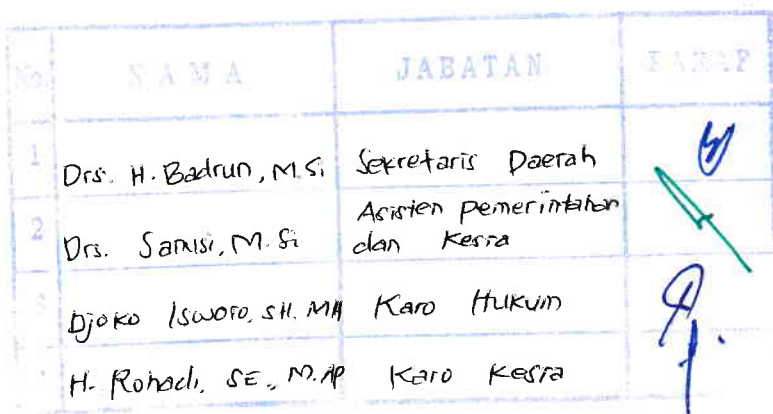 No. NAMA JABATAN PARAF
1 Drs. H. Badrun, M.Si Sekretaris Daerah
2 Drs. Sarusi, M.Si Asisten pemerintahan
dan Kesra
3 Djoko Isworo, SH. MH Karo Hukum
H. Rohadi, SE., M.AP Karo Kesra